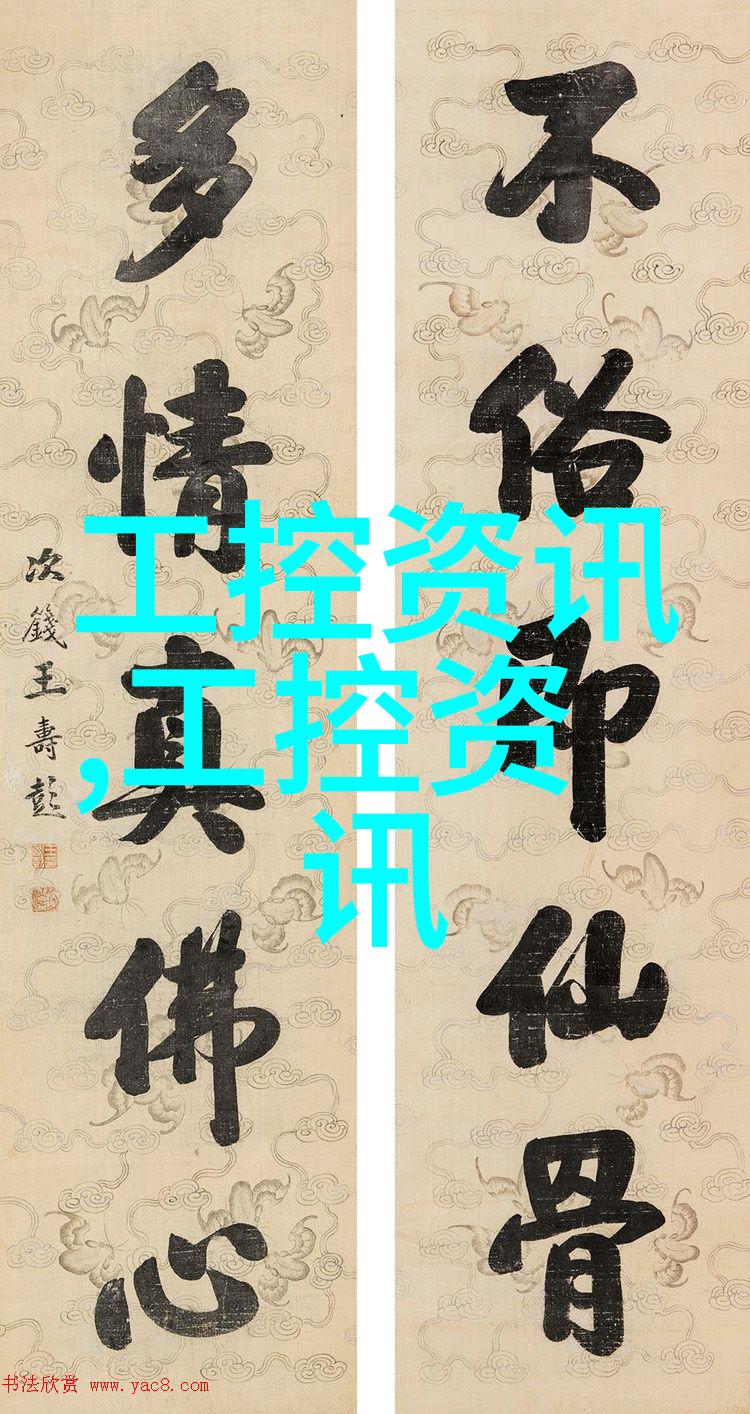 不俗即仙骨
多情真佛心
次籛王壽彭
工控资讯
,工控资
讯
书法欣赏 www.yac8.com